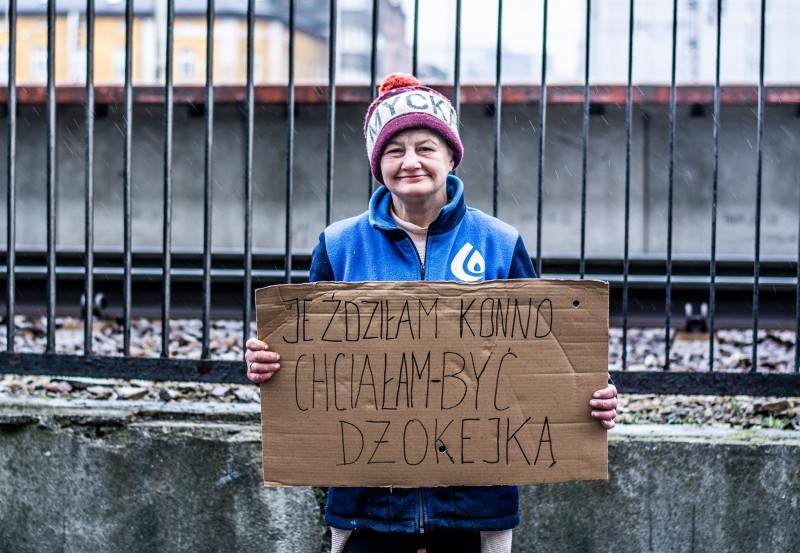 MYCK
JEŹDZIŁAM KONNO
CHCIAŁAM-BYĆ
DŻOKEJKĄ